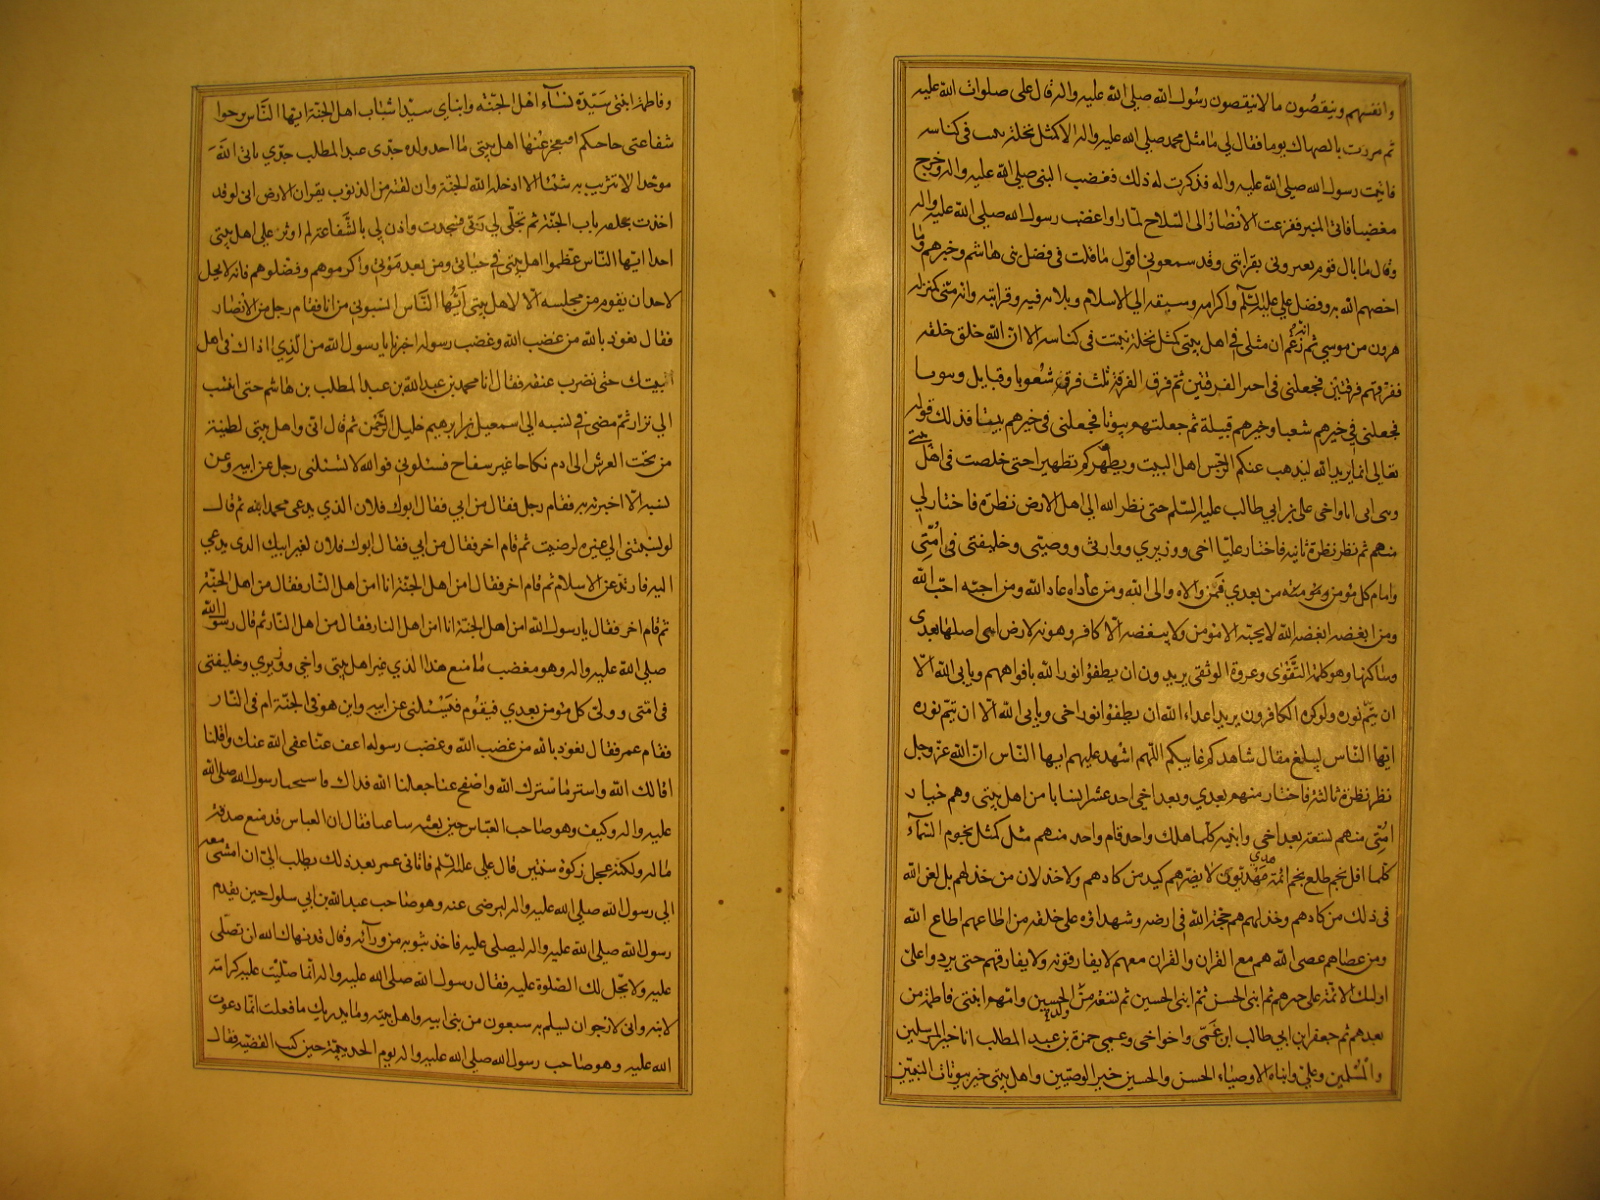 وانفسهم وينقصون مالا ينقصون رسول الله صلى الله عليه واله قال على صلوات الله عليه
ثم مررت بالصهاك يوما فقال لي ما مثل محمد صلى الله عليه واله الا كمثل نخلة نبتت فى كناسه
فاتيت رسول الله صلى الله عليه واله فذكرت له ذلك فغضب النبى صلى الله عليه واله وخرج
مغضبا فاتى المنبر ففزعت الأنصار الى السلاح لما راوا غضب رسول الله صلى الله عليه واله
وقال ما بال قوم يعيرونى بقرابتى وقد سمعونى اقول ما قلت فى فضل بنى هاشم وخبرهم وما
اخصهم الله به وفضل على عليه السلم واكرامه وسبقه الى الاسلام وبلائه فيه وقرابته وانه منى كمنزله
هرون من موسى ثم زعم انه ان مثلى فى اهل بيتى كمثل نخلة نبتت فى كناسه الا ان الله خلق خلقه
ففرقهم فرقتين فجعلنى فى احير الفرقتين ثم فرق الفرقة ثلث فرق شعوبا وقبايل وبيوتا
فجعلنى فى خيرهم شعبا وخيرهم قبيلة ثم جعلتهم بيوتا فجعلنى فى خيرهم بيتا فذلك قوله
تعالى انما يريد الله ليذهب عنكم الرجس اهل البيت ويطهركم تطهيرا حتى خلصت فى اهل بيتى
وبنى ابى انا واخى على بن ابي طالب عليه السلم حتى نظر الله الى اهل الارض نظرة فاختارلي
منهم ثم نظر نظرة ثانيه فاختار عليا اخى ووزيري ووارثى ووصيتى وخليفتى فى امتى
وامام كل مؤمن ومؤمنه من بعدي فمن والاه والى الله ومن عاداه عاد الله ومن احبه احب الله
ومن ابغضه ابغضه الله لا يحبه الا مؤمن ولا يبغضه الا كافر وهو نه لارض ابى اصلها بعدى
وساكنها وهو كلمة التقوى وعروة الوثقى يريدون ان يطفؤا نور الله بافواههم ويابى الله الا
ان يتم نوره ولو كره الكافرون يريد اعداء الله ان يطفؤا نور اخى ويابى الله الا ان يتم نوره
ايها الناس ليبلغ مقال شاهدكم غايبكم اللهم اشهد عليهم ايها الناس ان الله عز وجل
نظر نظرة ثالثة فاختار منهم بعدي وبعد اخى احد عشر انسانا من اهل بيتى وهم خيار
امتى منهم تسعة بعد اخى وابنيه كلما هلك واحد قام واحد منهم مثل كمثل نجوم السماء
كلما افل نجم طلع نجم ائمة هدي مهديون لا يضرهم كيد من كادهم ولا خذلان من خذلهم بل لعن الله
فى ذلك من كادهم وخذلهم هم حجة الله فى ارضه وشهداؤه على خلقه من اطاعهم اطاع الله
ومن عصاهم عصى الله هم مع القران والقران معهم لا يفارقونه ولا يفارقهم حتى يردوا على
اولئك الائمة على خيرهم ثم ابنى الحسن ثم ابنى الحسين ثم تسعة من ولد الحسين وامهم ابنتى فاطمة من
بعدهم ثم جعفر ابن ابي طالب ابن عمى واخواخى وعمى حمزة بن عبد المطلب انا خير المرسلين
والمسلمين وعلى وابناه الاوصياء الحسن والحسين خير الوصيين واهل بيتى خير بيوتات النبيين
وفاطمة ابنتى سيدة نساء اهل الجنة وابناي سيدا شباب اهل الجنة ايها الناس يرجوا
شفاعتى حاحكم افيعجز عنها اهل بيتى ما احد ولده جدى عبد المطلب جدي باتى الله
موحدا لا تثريب به شئا الا ادخله الله الجنة وان لقته من الذنوب بقران الارض انى لو قد
اخذت بحلقه باب الجنة ثم تجلى لي ربى فسجدت واذن لي بالشفاعة لم اوثر على اهل بيتى
احدا ايها الناس عظموا اهل بيتى فى حياتى ومن بعد موتى واكرموهم وفضلوهم فانه لا يحل
لاحد ان يقوم من مجلسه الا لاهل بيتى ايها الناس انسبونى من انا فقام رجل من الأنصار
فقال نعوذ بالله من غضب الله وغضب رسوله اخبرنا يا رسول الله من الذي اذاك فى اهل
البيتك حتى نضرب عنقه فقال انا محمد بن عبد الله بن عبد المطلب بن هاشم حتى انتسب
الى نزار ثم مضى فى نسبه الى اسمعيل بن ابرهيم خليل الرحمن ثم قال انى واهل بيتى لطينة
من تحت العرش الى ادم نكاحا غير سفاح فسئلونى فوالله لا تسئلنى رجل عن ابيه وعن
نسبه الا اخبرته به فقام رجل فقال من ابي فقال ابوك فلان الذي يدعى محمد الله ثم قال
لو نسبتنى الى غيره لرضيت ثم قام اخر فقال من ابي فقال ابوك فلان لغير ابيك الذى يدعى
اليه فارتد عن الاسلام ثم قام اخر فقال امن اهل الجنة انا امن اهل النار فقال من اهل الجنة
ثم قام اخر فقال يا رسول الله امن اهل الجنة انا امن اهل النار فقال من اهل النار ثم قال رسول الله
صلى الله عليه واله وهو مغضب ما منع هذا الذي غير اهل بيتى واخى ووزيري وخليفتى
فى امتى وولى كل مؤمن بعدي فيقوم فيسئلنى عن ابيه واين هو فى الجنة ام فى النار
فقام عمر فقال نعوذ بالله من غضب الله وغضب رسوله اعف عنا عفى الله عنك واقلنا
اقالك الله واستر ما سترك الله واصفح عنا جعلنا الله فداك فاستحيا رسول الله صلى الله
عليه واله وكيف وهو صاحب العباس حين بعثه ساعيا فقال ان العباس قد منع صدقة
ماله ولكنه عجل زكوة سنتين قال على عليه السلم فاتانى عمر بعد ذلك يطلب الى ان امشى معه
الى رسول الله صلى الله عليه واله ليرضى عنه وهو صاحب عبد الله بن ابي سلول حين يقدم
رسول الله صلى الله عليه واله ليصلى عليه فاخذ بثوبه من ورائه وقال قد نهاك الله ان تصلى
عليه ولا يحل لك الصلوة عليه فقال رسول الله صلى الله عليه واله انما صليت عليه كرامة
لابنه وانى لارجو ان يسلم به سبعون من بنى ابيه واهل بيته وما يدريك ما فعلت انما دعوت
الله عليه وهو صاحب رسول الله صلى الله عليه واله يوم الحديبية حين كتب القضيه فقال